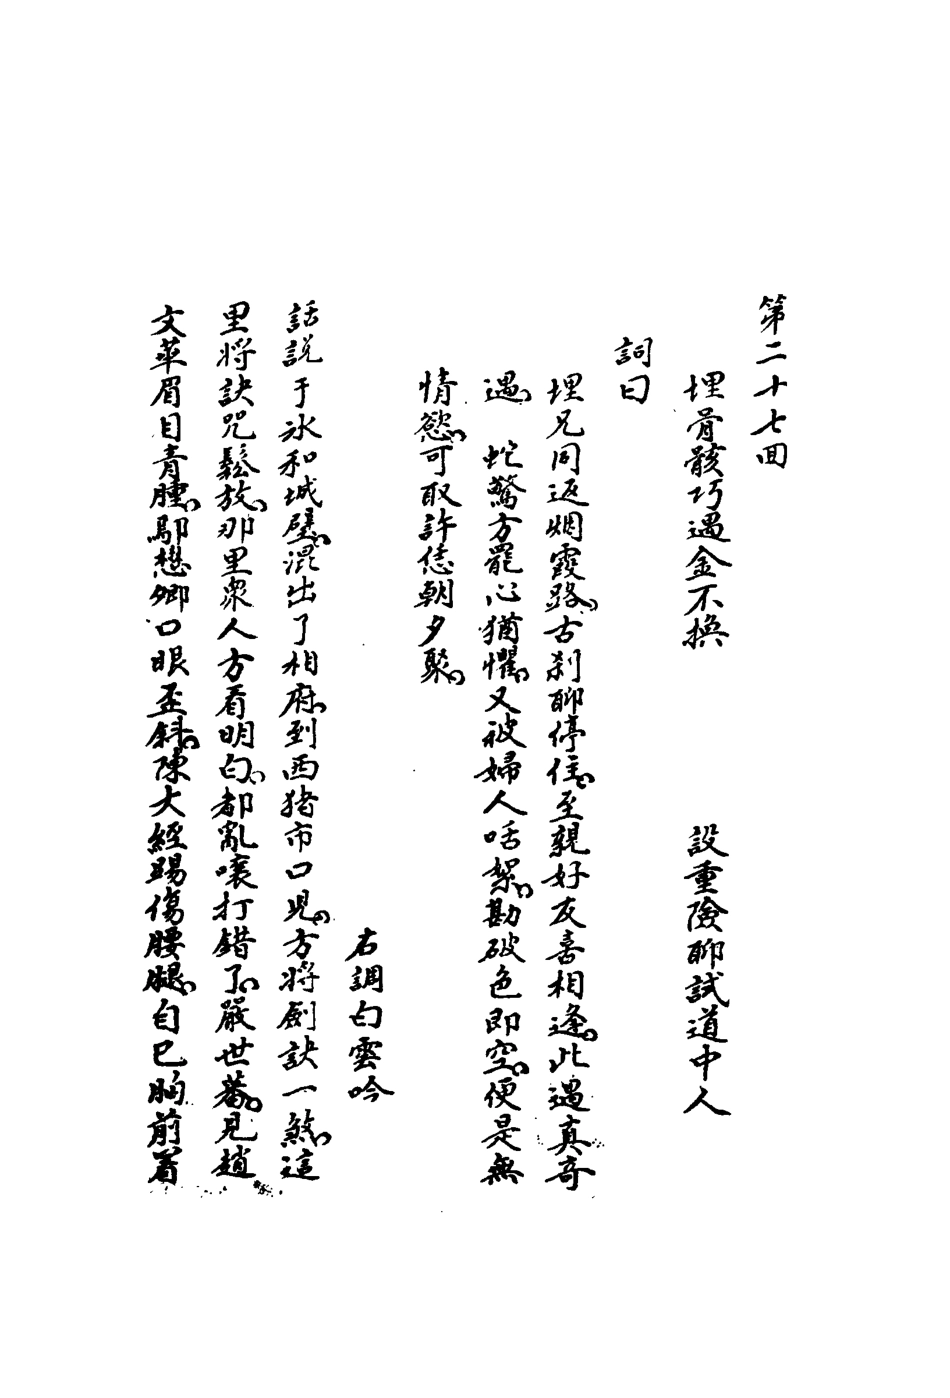 第二十七回
埋骨骸巧遇金不換　設重險聊試道中人
詞曰
埋兄同返烟霞路古刹聊停住至親好友喜相逢此遇真奇
遇　蛇驚方罷心猶懼又被婦人咶絮勘破色即空便是無
情慾可取許伱朝夕聚
右調白雲吟
話説于氷和城璧混出了相府到西猪市口児方將劍訣一煞這
里將訣咒鬆放那里衆人方看明白都亂嚷打錯了嚴世蕃見趙
文華眉目青腫鄢懋卿口眼歪斜陳大經踢傷腰腿自已胸前着